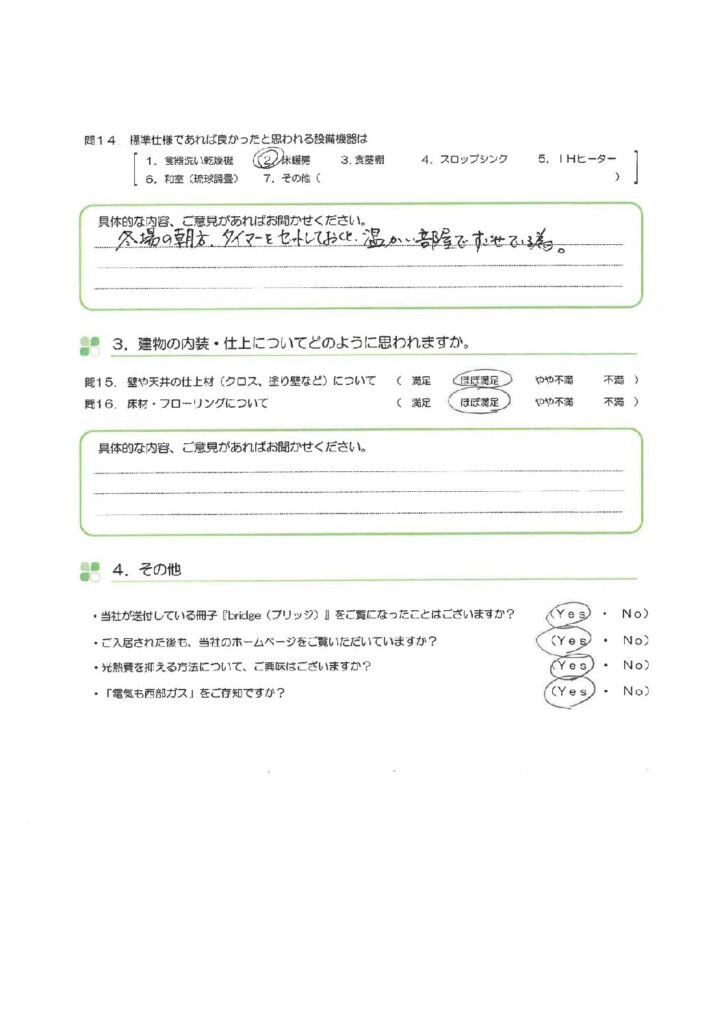 問14 標準仕様であれば良かったと思われる設備機器は
1. 食器洗い乾燥機 2. 床暖房 3. 食器棚 4. スロップシンク 5. IHヒーター
6. 和室（琉球調畳） 7. その他（ ）
具体的な内容、ご意見があればお聞かせください。
冬場の朝方、タイマーをセットしておくと、温かい部屋で
3. 建物の内装・仕上についてどのように思われますか。
問15. 壁や天井の仕上材（クロス、塗り壁など）について （ 満足 ほぼ満足 やや不満 不満 ）
問16. 床材・フローリングについて （ 満足 ほぼ満足 やや不満 不満 ）
具体的な内容、ご意見があればお聞かせください。
4. その他
・当社が送付している冊子『bridge（ブリッジ）』をご覧になったことはございますか？ （Yes ・ No）
・ご入居された後も、当社のホームページをご覧いただいていますか？ （Yes ・ No）
・光熱費を抑える方法について、ご興味はございますか？ （Yes ・ No）
・「電気も西部ガス」をご存知ですか？ （Yes ・ No）